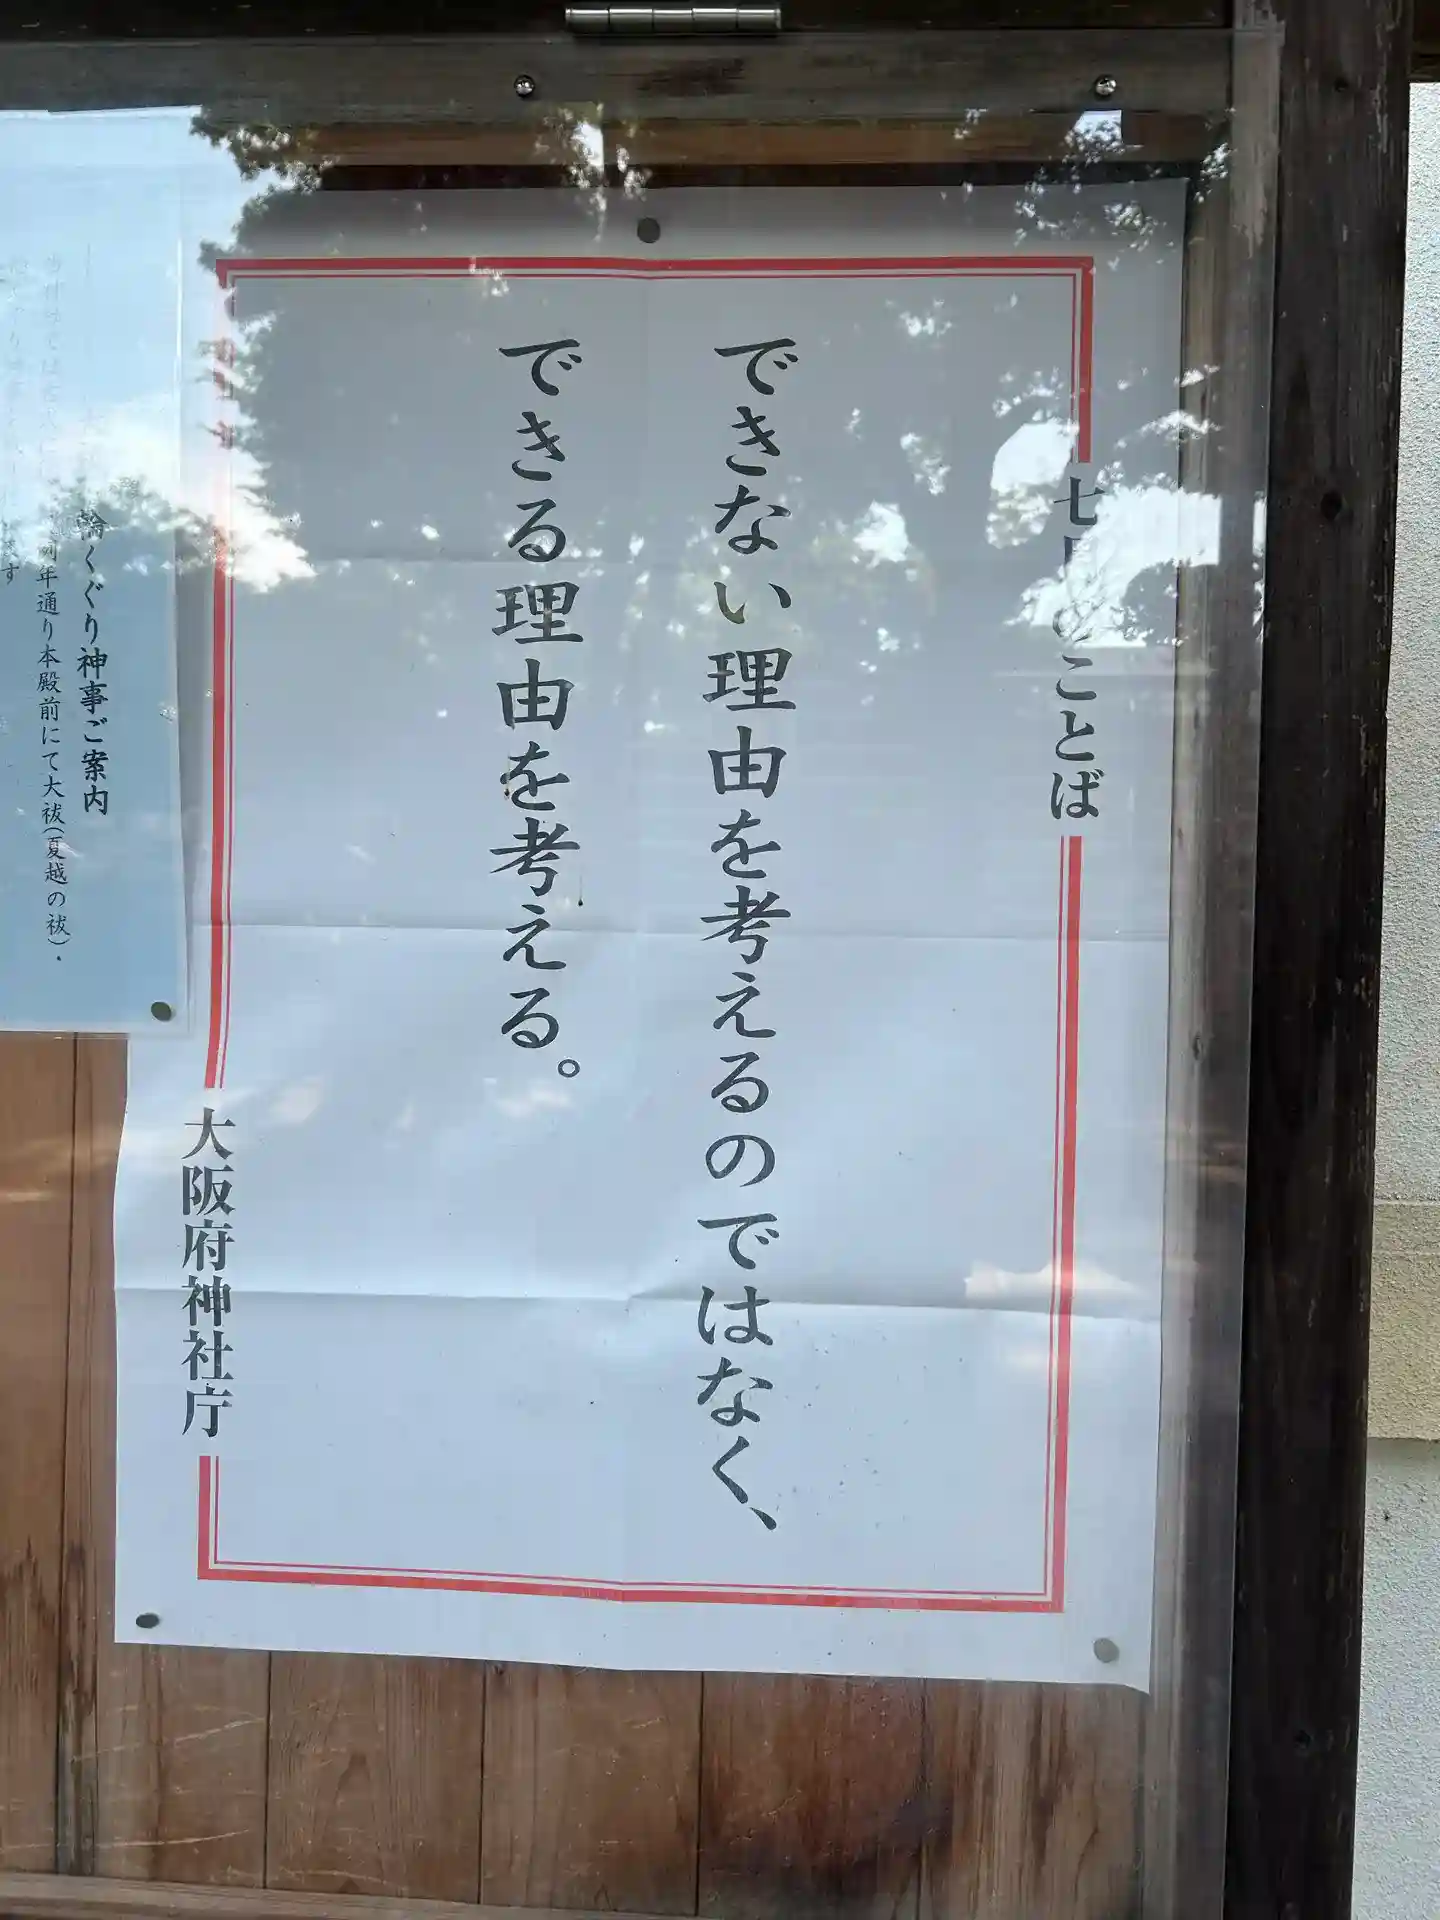 七月のことば
できない理由を考えるのではなく、
できる理由を考える。
大阪府神社庁
輪くぐり神事ご案内
例年通り本殿前にて大祓(夏越の祓)・
ます